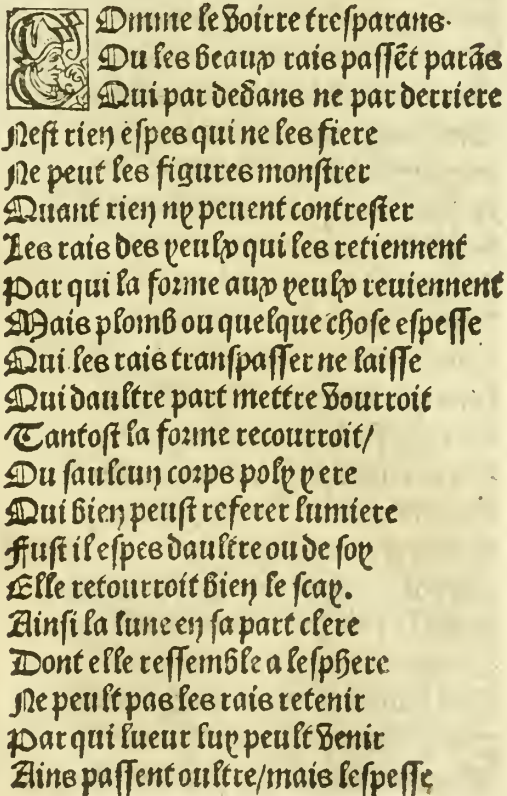 COmme le voirre tresparans.
Ou les beaux rais passēt parās
Qui par dedans ne par derriere
Nest rien espes qui ne les fiere
Ne peut les figures monstrer
Quant rien ny peuent contrester
Les rais des yeulx qui les retiennent
Par qui la forme aux yeulx reuiennent
Mais plomb ou quelque chose espesse
Qui les rais transpasser ne laisse
Qui daultre part mettre vourroit
Tantost la forme recourroit/
Ou saulcun corps poly y ere
Qui bien peust referer lumiere
Fust il espes daultre ou de soy
Elle retourroit bien le scay.
Ainsi la lune en sa part clere
Dont elle ressemble a lesphere
Ne peult pas les rais retenir
Par qui lueur luy peult venir
Ains passent oultre/mais lespesse